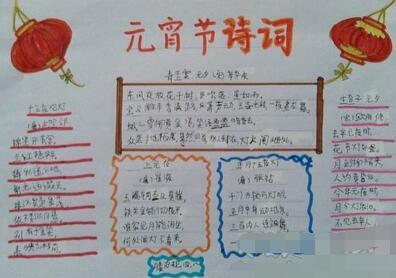 元宵节诗词
青玉案 元夕 (宋) 辛弃疾
东风夜放花千树,更吹落,星如雨。
宝马雕车香满路,凤箫声动,玉壶光转,一夜鱼龙舞。
蛾儿雪柳黄金缕,笑语盈盈暗香去。
众里寻他千百度,蓦然回首,那人却在,灯火阑珊处。
十五夜观灯
(唐)卢照邻
锦里开芳宴,
兰缸艳早年。
缛彩遥分地,
繁光远缀天。
接汉疑星落,
依楼似月悬。
别有千金笑,
来映九枝前。
上元夜
(唐)崔液
玉漏铜壶且莫催,
铁关金锁彻夜开。
谁家见月能闲坐,
何处闻灯不看来。
正月十五夜灯
(唐)张祜
千门开锁万灯明,
正月中旬动帝京。
三百内人连袖舞,
生查子 元夕
(宋)欧阳修
去年元夜时,
花市灯如昼。
月上柳梢头,
人约黄昏后。
今年元夜时,
月与灯依旧。
不见去年人,